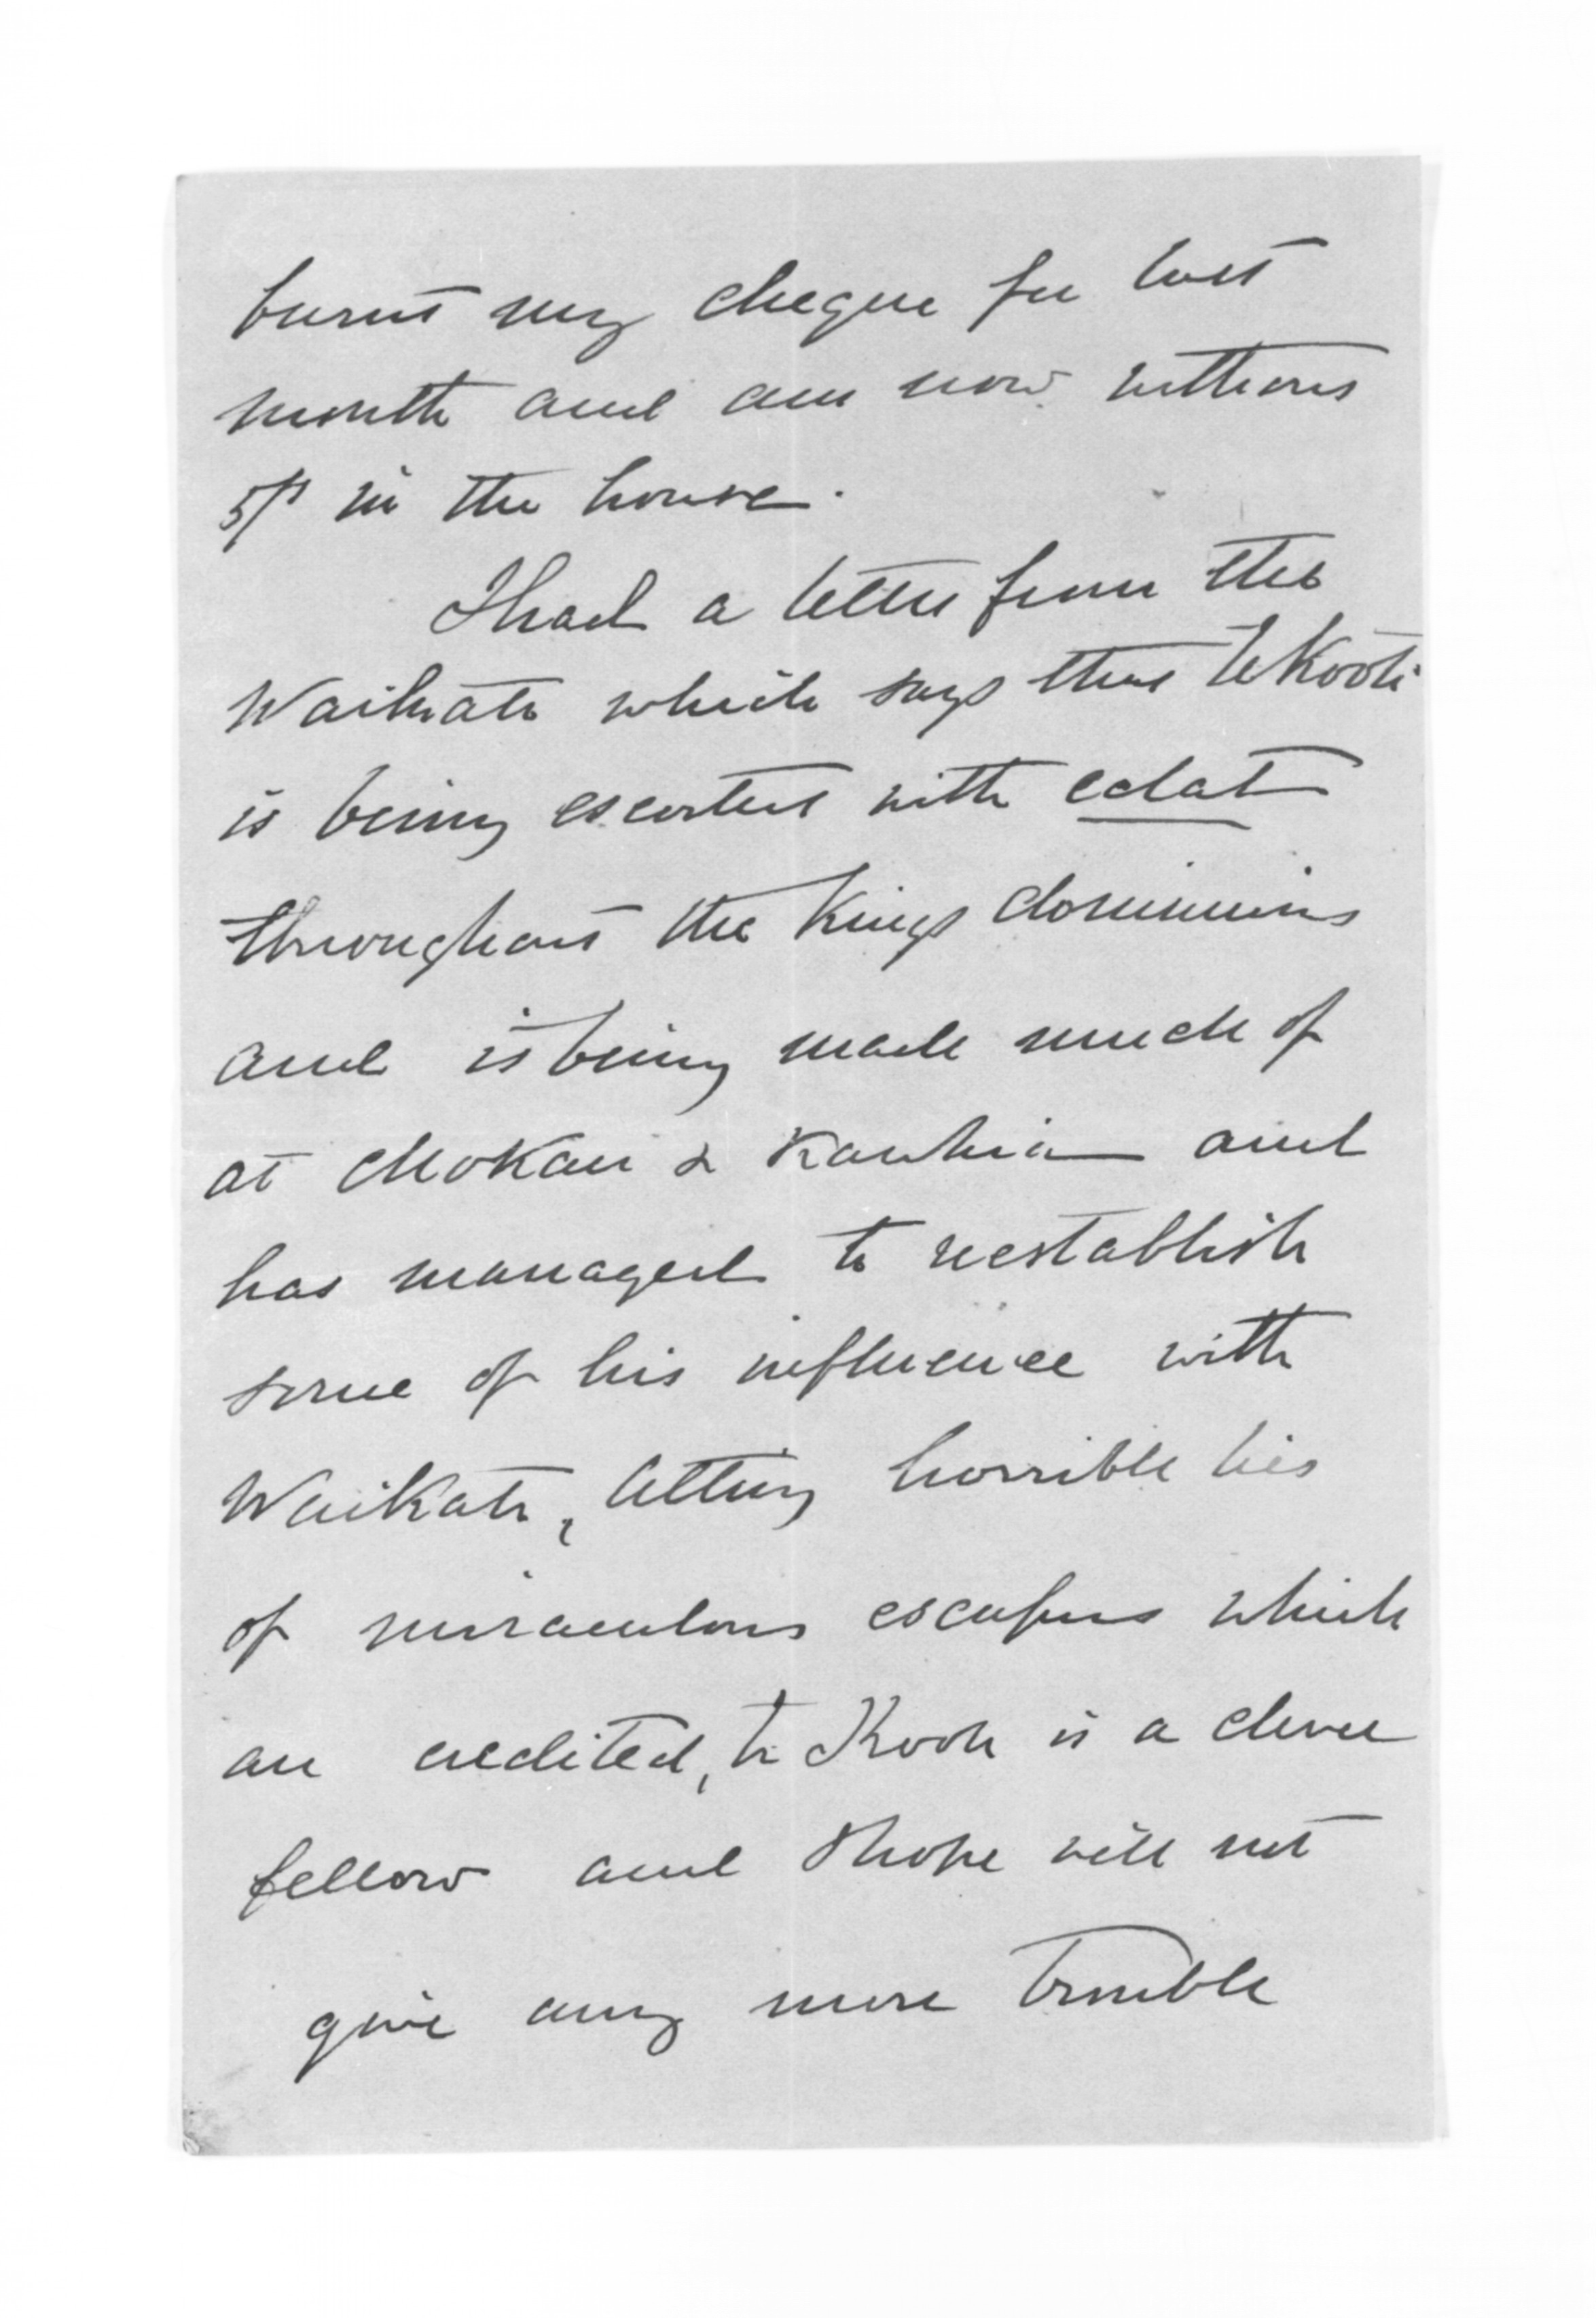 burnt my cheque for last
month and am now without
5/- in the house.
I had a letter from the
Waikato which says that Te Kooti
is being escorted with eclat
throughout the Kings dominions
and is being made much of
at Mokau & Kawhia and
has managed to reestablish
some of his influence with
Waikato, telling horrible lies
of miraculous escapes which
are credited, Te Kooti is a clever
fellow and I hope will not
give any more trouble